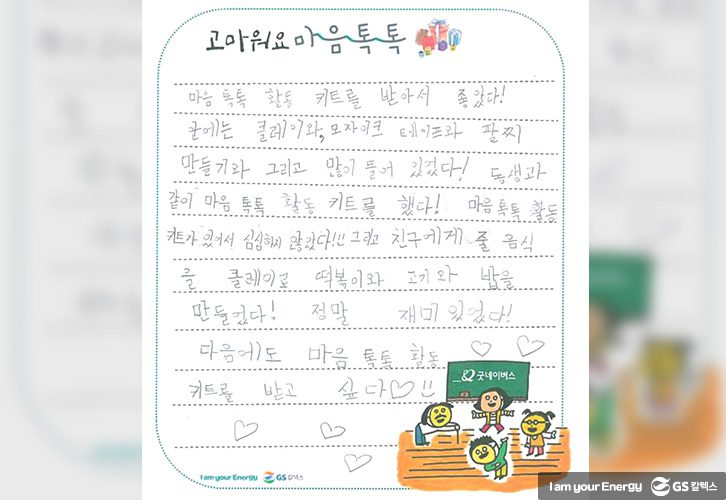 고마워요 마음톡톡
마음 톡톡 활동 키트를 받아서 좋았다!
안에는 클레이와, 모자이크 테이프와 팔찌
만들기와 그리고 많이 들어 있었다! 동생과
같이 마음 톡톡 활동 키트를 했다! 마음톡톡 활동
키트가 있어서 심심하지 않았다!! 그리고 친구에게 줄 음식
을 클레이로 떡볶이와 고기와 밥을
만들었다! 정말 재미 있었다!
다음에도 마음 톡톡 활동
키트를 받고 싶다♡!!
굿네이버스
I am your Energy GS 칼텍스
I am your Energy GS 칼텍스